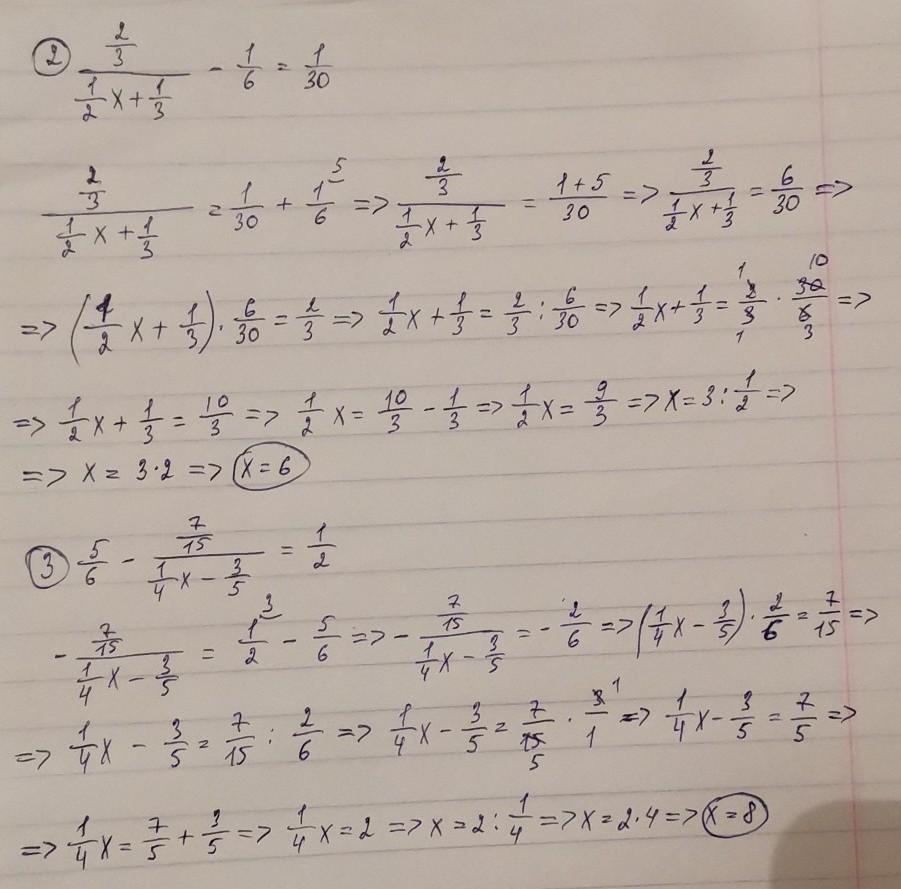 ② (2/3)/(1/2 x + 1/3) - 1/6 = 1/30
(2/3)/(1/2 x + 1/3) = 1/30 + 1/6 ⁵ => (2/3)/(1/2 x + 1/3) = (1+5)/30 => (2/3)/(1/2 x + 1/3) = 6/30 =>
=> (1/2 x + 1/3) · 6/30 = 2/3 => 1/2 x + 1/3 = 2/3 : 6/30 => 1/2 x + 1/3 = 2/3 (1/1) · 30/6 (10/3) =>
=> 1/2 x + 1/3 = 10/3 => 1/2 x = 10/3 - 1/3 => 1/2 x = 9/3 => x = 3 : 1/2 =>
=> x = 3·2 => x = 6
③ 5/6 - (7/15)/(1/4 x - 3/5) = 1/2
- (7/15)/(1/4 x - 3/5) = 1/2 ³ - 5/6 => - (7/15)/(1/4 x - 3/5) = - 2/6 => (1/4 x - 3/5) · 2/6 = 7/15 =>
=> 1/4 x - 3/5 = 7/15 : 2/6 => 1/4 x - 3/5 = 7/15 (5) · 3/1 (1) => 1/4 x - 3/5 = 7/5 =>
=> 1/4 x = 7/5 + 3/5 => 1/4 x = 2 => x = 2 : 1/4 => x = 2·4 => x = 8